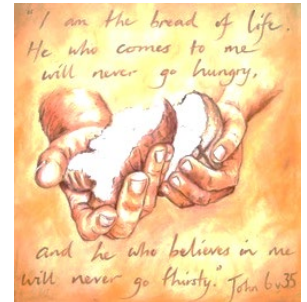 "I am the bread of life.
He who comes to me
will never go hungry,
and he who believes in me
will never go thirsty." John 6v35